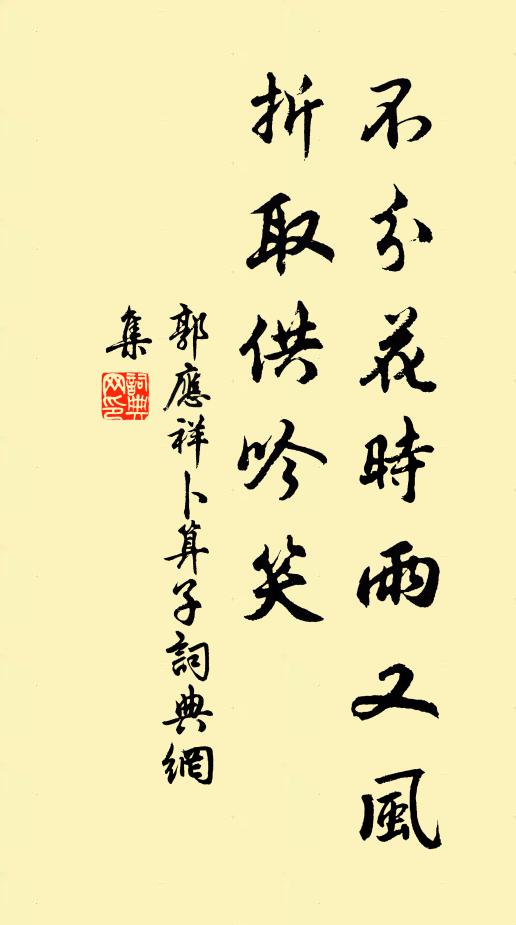 不分花時雨又風
折取供吟笑
郭應祥卜算子詞典網
集
詞典网印